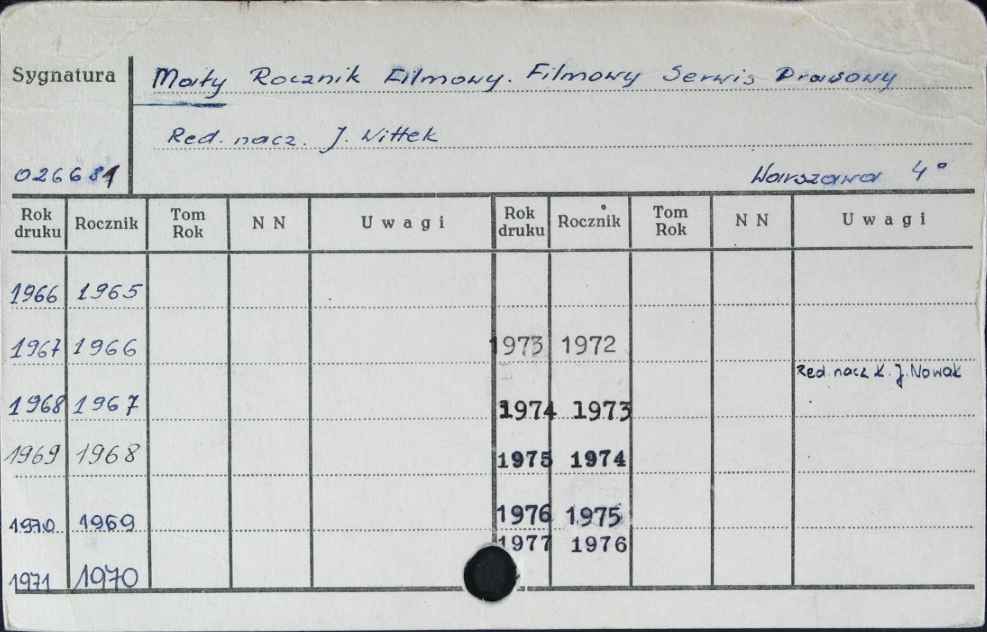 Sygnatura
Mały Rocznik Filmowy. Filmowy Serwis Prasowy
Red. nacz. J. Wittek
026681
Warszawa 4°
Rok druku Rocznik Tom Rok N N U w a g i Rok druku Rocznik Tom Rok N N U w a g i
1966 1965
1967 1966 1973 1972
Red. nacz K. J. Nowak
1968 1967 1974 1973
1969 1968 1975 1974
1970 1969 1976 1975
1977 1976
1971 1970